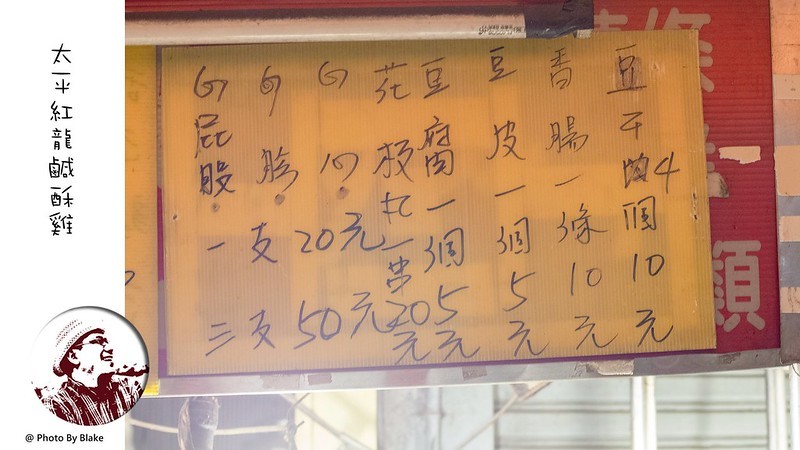 太平紅龍鹹酥雞
豆干4個10元
香腸一條10元
豆皮一個5元
豆腐一個5元
花枝丸一串20元
G心.
G胗.
G屁股.
一支20元
三支50元
@ Photo By Blake